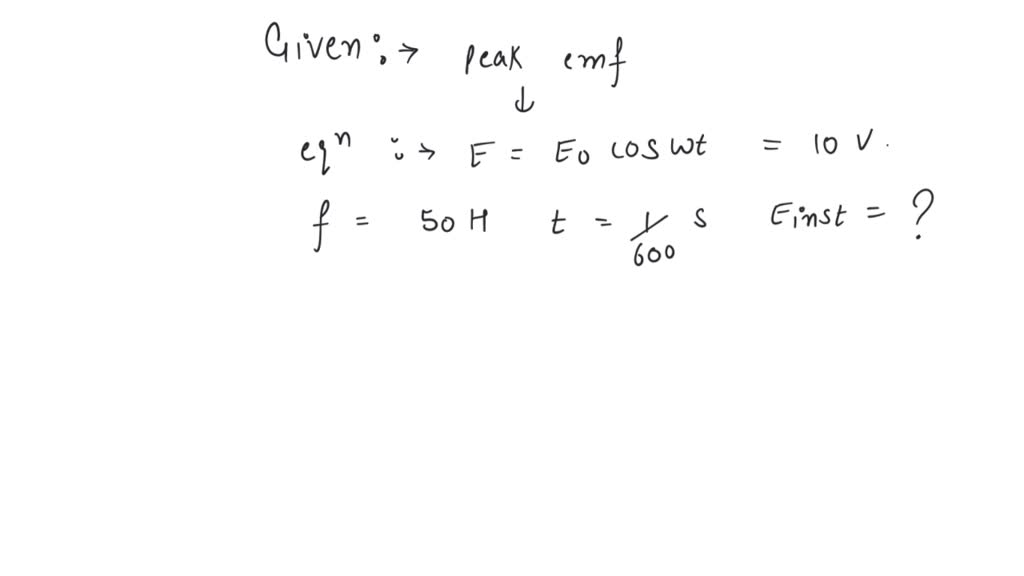 Given :→ peak emf
↓
eqⁿ :→ E = E₀ cos wt = 10 V.
f = 50 H t = 1/600 s Einst = ?